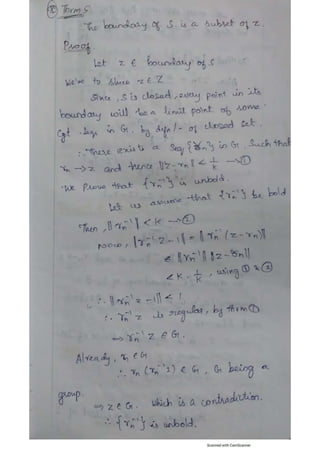 Thrm 5
The boundary of S is a subset of Z.
Proof
Let z ∈ boundary of S
We've to show z ∈ Z
Since, S is closed, every point in its
boundary will be a limit point of some
cgt. seqn in G. by defn/- of closed set.
∴ There exists a seq {rn} in G such that
rn → z and hence ||z - rn|| < 1/k → ①
We prove that {rn⁻¹} is unbdd.
Let us assume that {rn⁻¹} be bdd
Then, ||rn⁻¹|| < k → ②
Now, ||rn⁻¹z - 1|| = ||rn⁻¹(z - rn)||
≤ ||rn⁻¹|| ||z - rn||
< k · 1/k, using ① & ②
∴ ||rn⁻¹z - 1|| < 1
∴ rn⁻¹z is regular, by thrm ①
⇒ rn⁻¹z ∈ G.
Already, rn ∈ G
∴ rn(rn⁻¹z) ∈ G, G being a
group.
⇒ z ∈ G. Which is a contradiction.
∴ {rn⁻¹} is unbdd.
Scanned with CamScanner